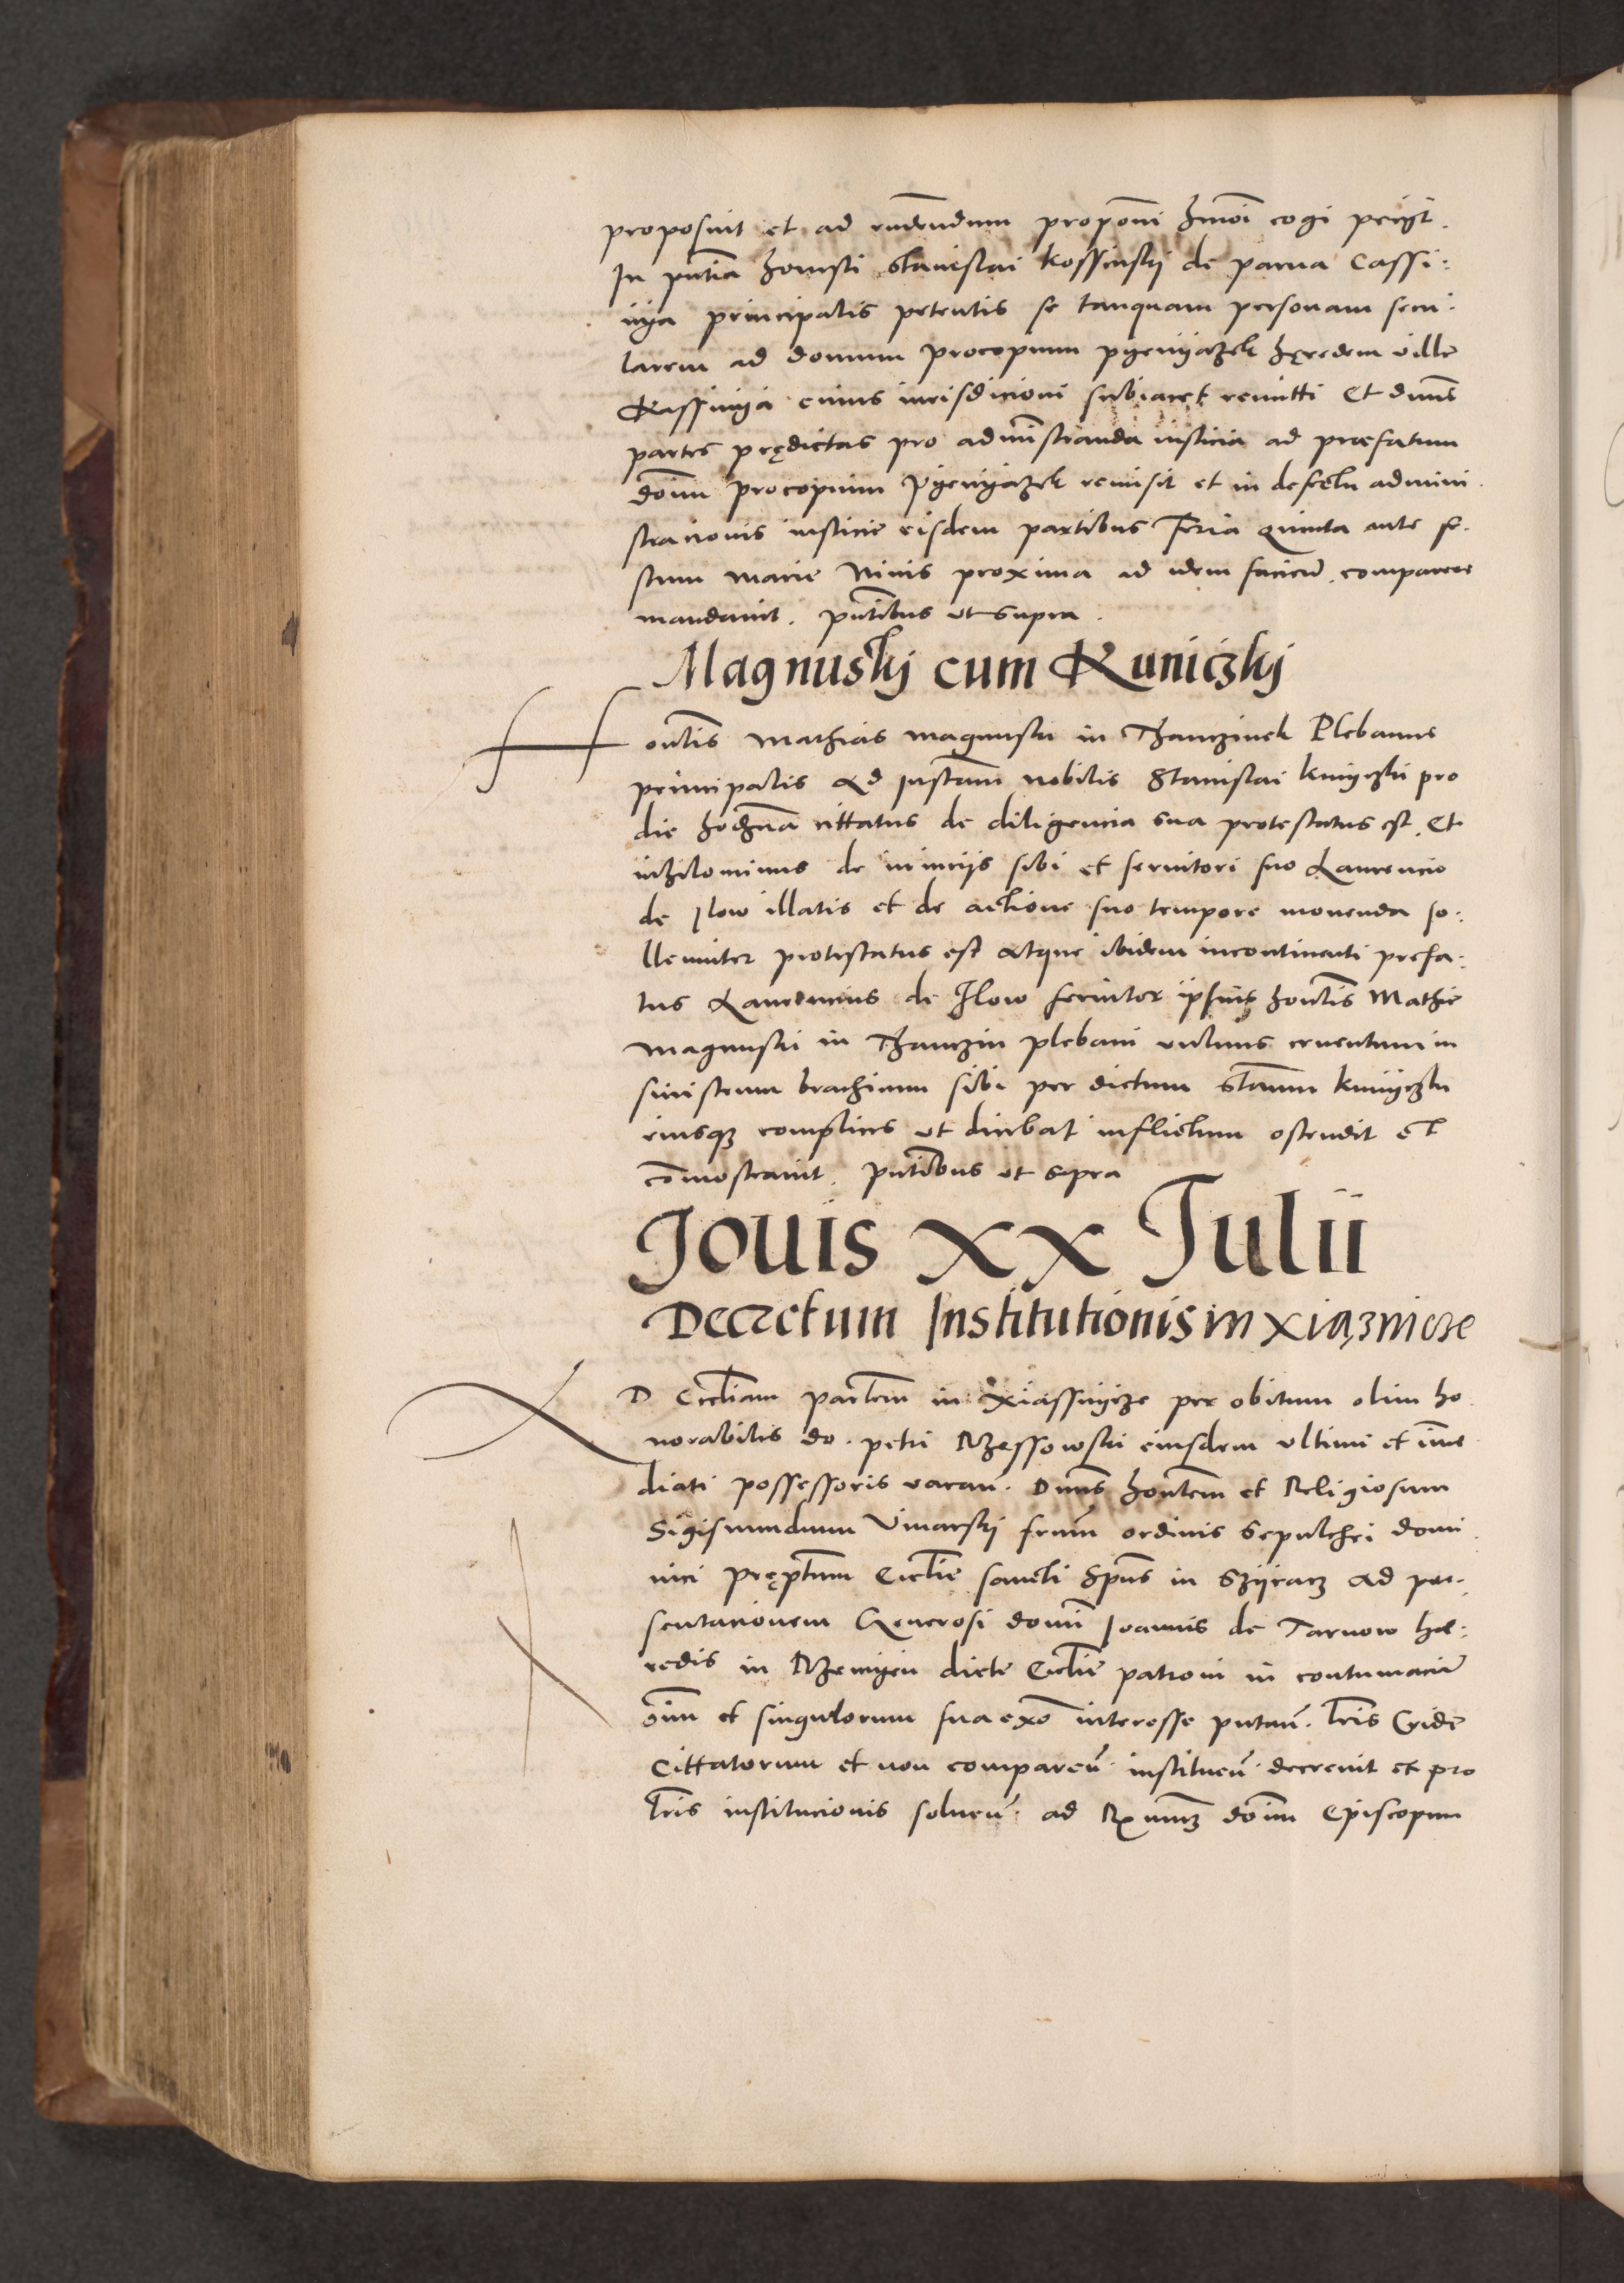 proposuit et ad rndendum proponi hmoi cogi peciit.
In pntia honesti Stanislai Kossinskij de parua Cassi:
nya principalis petentis se tanquam personam secu:
larem ad domum procopium pyenyazek hęredem ville
Kassinya cuius iurisdicioni subiacet remitti Et dnus
partes prędictas pro administranda iusticia ad præfatum
doim procopium Pyenyazek remisit et in defectu admini.
stracionis iusticie eisdem partibus Feria quinta ante fe.
stum Marie Niuis proxima ad idem faciend. comparere
mandauit. pntibus ut supra.
Magnuskj cum Kuniczkj
Hontis Mathias magnuski in Thanczinek Plebanus
principalis Ad instam nobilis Stanislai kuniczki pro
die hodierna cittatus de diligencia sua protestatus est. Et
nihilominus de iniuriis sibi et seruitori suo Laurencio
de Ilow illatis et de actione suo tempore mouenda so:
llemniter protestatus est atque ibidem incontinenti prefa:
tus Laurencius de Ilow seruitor ipsius hontis Mathie
Magnuski in Thanczin plebani vulnus cruentum in
sinistrum brachium sibi per dictum Stanum kuniczki
eiusqz complices ut dicebat inflictum ostendit et
comostrauit. pntibus ut supra
Jouis XX Julii
Decretum Institutionis in xiąznicze
AD Eccliam parlem in Xiassnycze per obitum olim ho
norabilis do. petri Rzessowski eiusdem ultimi et ime
diati possessoris vacan. Dnus hontem et Religiosum
Sigismundum Vmarskj frum ordinis Sepulchri domi
nici pręptum Ecclie sancti Spus in Szyracz ad prę.
sentacionem Generosi domi Ioannis de Tarnow hæ:
redis in Rzemyen dicte Ecclie patroni in contumaciam
oim et singulorum sua exo interesse putan. Lris Cride
Cittatorum et non comparen. instituen. decreuit et pro
Lris institucionis soluen. ad Rmumz doim Episcopum